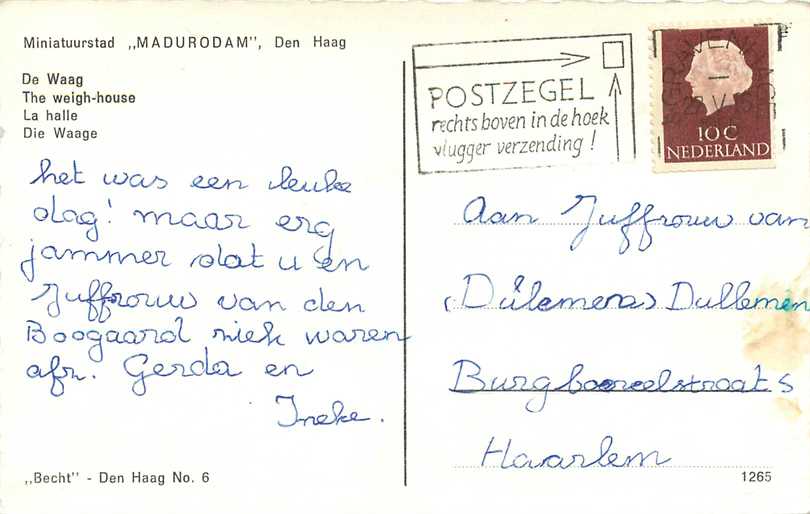 Miniatuurstad „MADURODAM", Den Haag
De Waag
The weigh-house
La halle
Die Waage
het was een leuke
dag! maar erg
jammer dat u en
Juffrouw van den
Boogaard niet waren
afr. Gerda en
Ineke.
„Becht" - Den Haag No. 6
POSTZEGEL
rechts boven in de hoek
vlugger verzending!
10 C
NEDERLAND
Aan Juffrouw van
Dullemen
Haarlem
1265